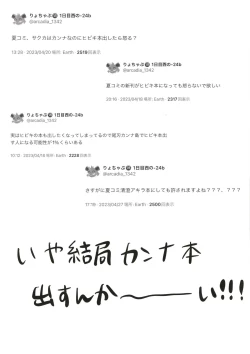 りょちゃぷ 1日目西の-24b
@arcadia_1342
夏コミ、サクカはカンナなのにヒビキ本出したら怒る?
13:38・2023/04/20 場所: Earth・2619回表示
りょちゃぷ 1日目西の-24b
@arcadia_1342
夏コミの新刊がヒビキ本になっても怒らないで欲しい
20:16・2023/04/16 場所: Earth・2317回表示
りょちゃぷ 1日目西の-24b
@arcadia_1342
実はヒビキの本も出したくなってしまってるので尾刃カンナ島でヒビキ本出
す人になる可能性が1%くらいある
11:12・2023/04/18 場所: Earth・2880回表示
りょちゃぷ 1日目西の-24b
@arcadia_1342
さすがに夏コミ清澄アキラ本にしても許されますよね???、???
17:18・2023/04/27 場所: Earth・2500回表示
いや結局カンナ本
出すんか〜い!!!